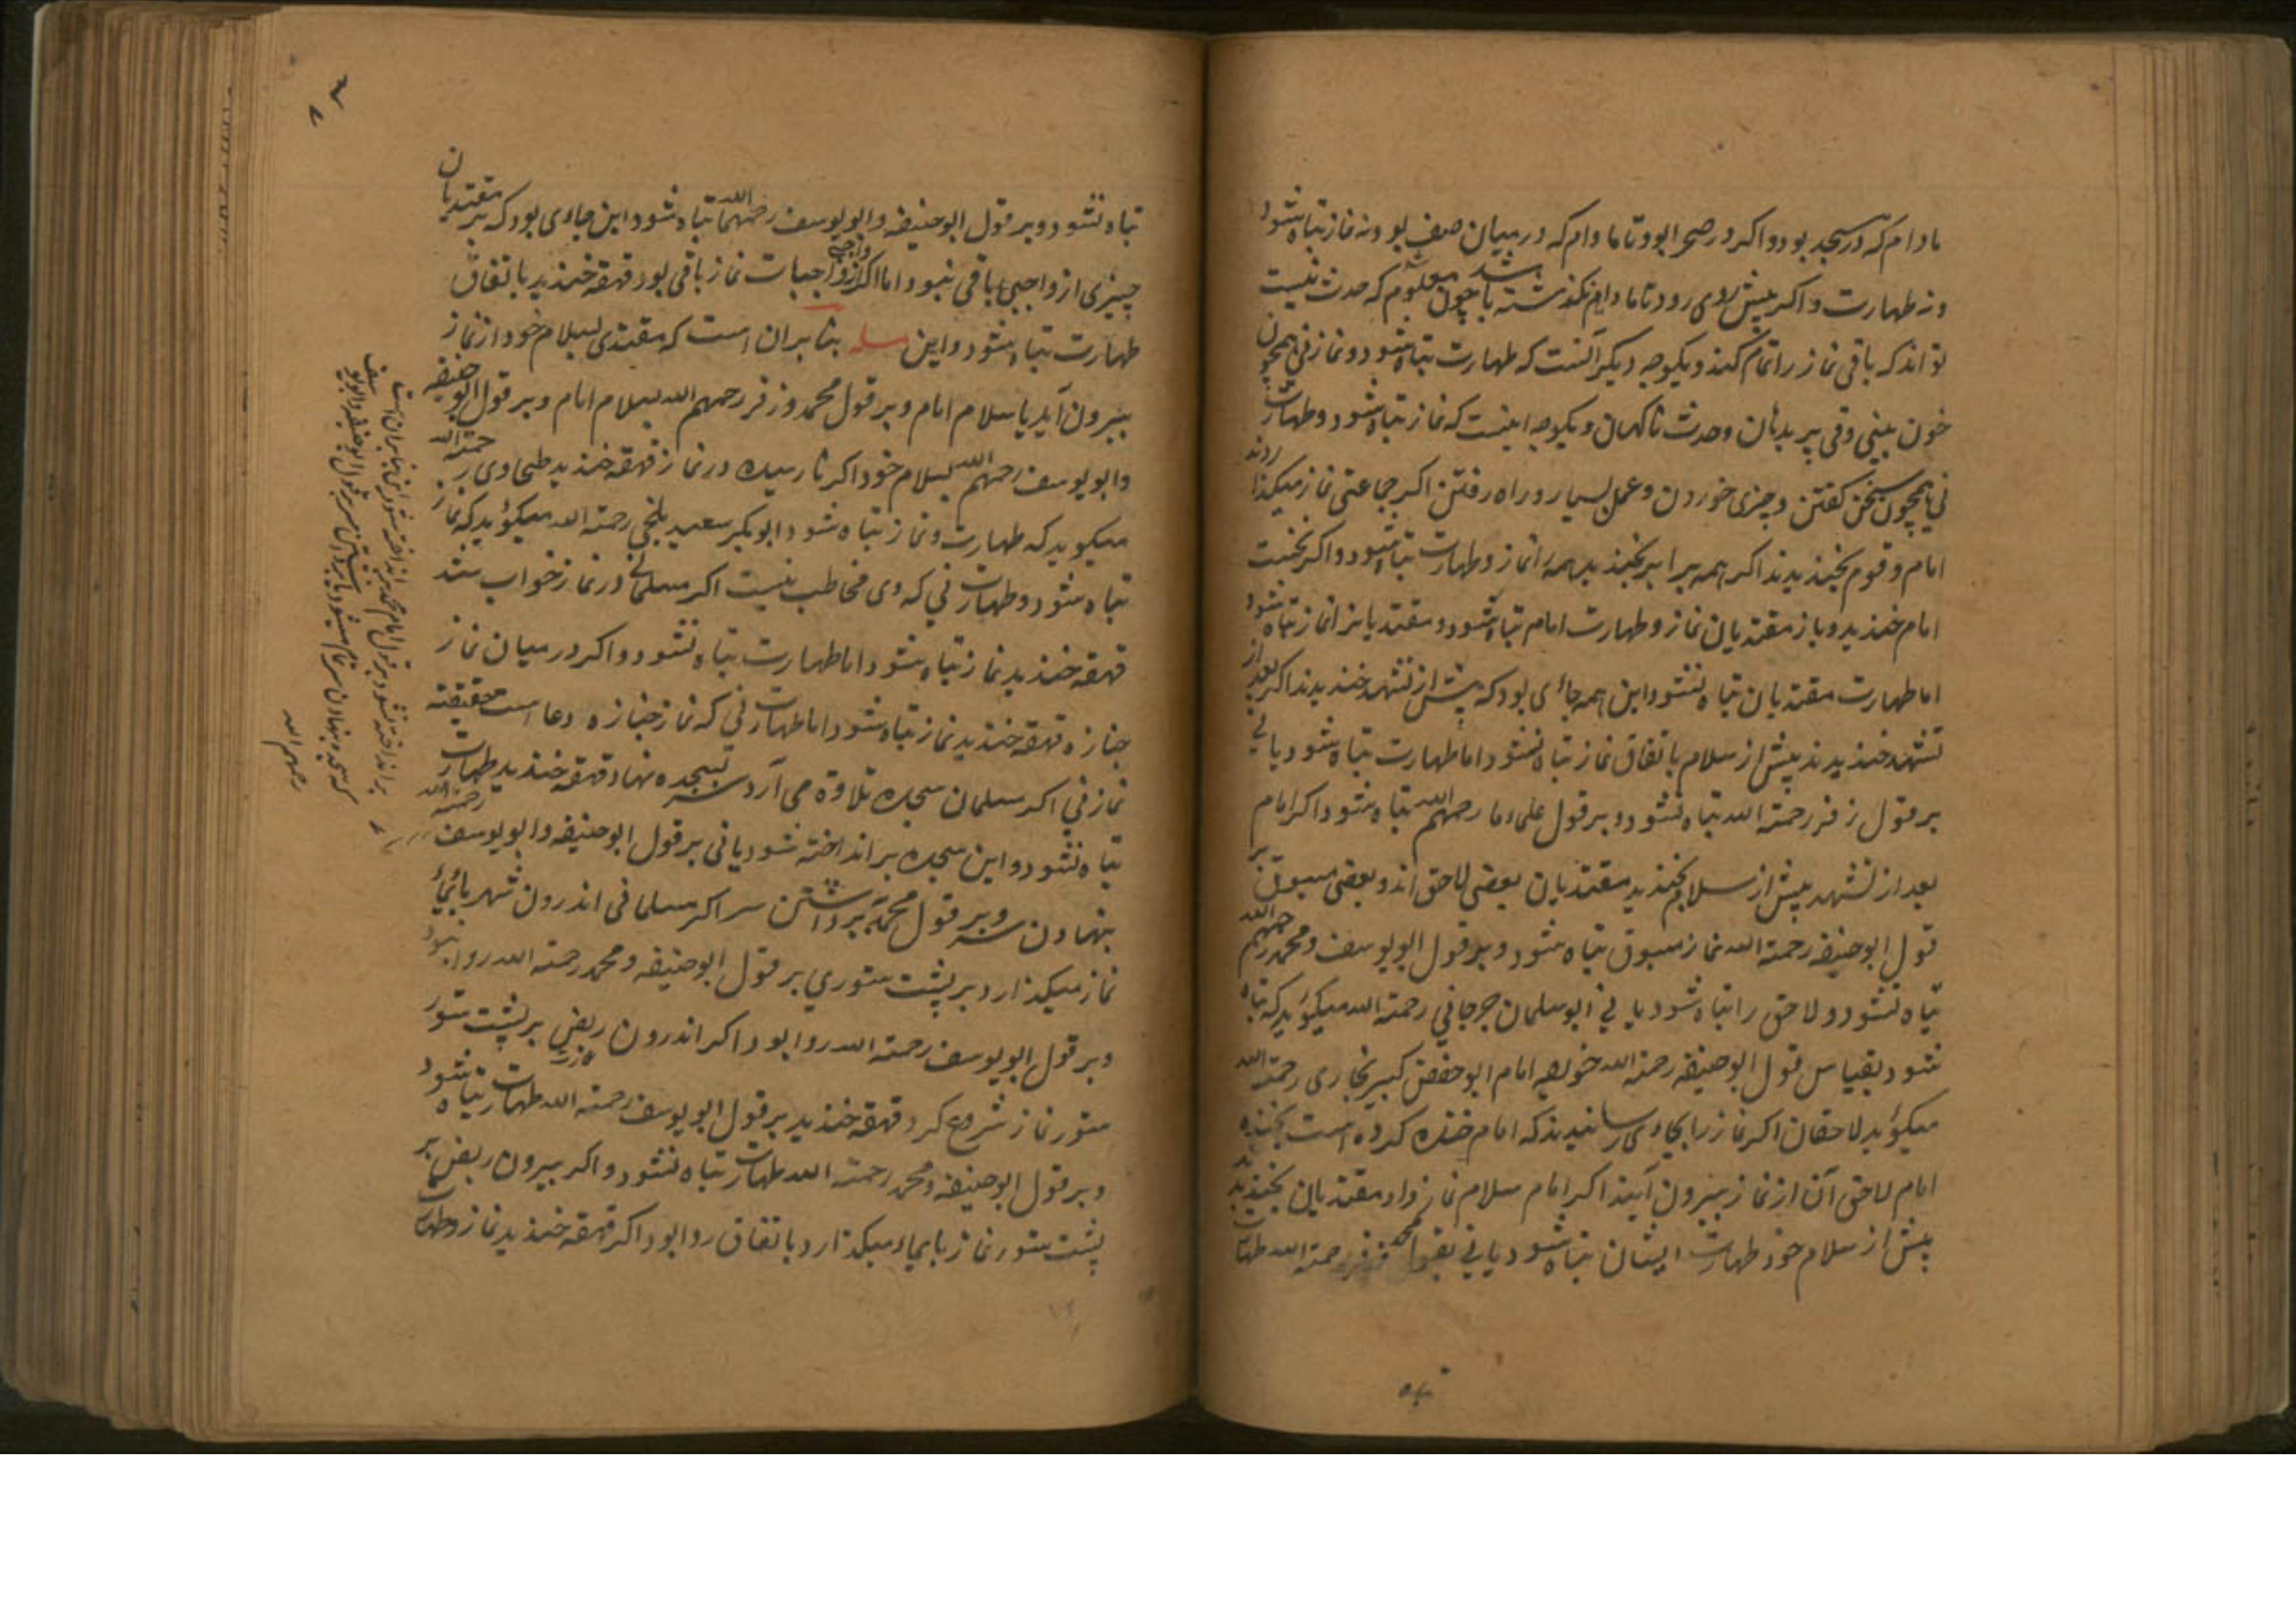 مادام که در مسجد بود و اکر در صحرا بود تا مادام که در میان صف بود نه نماز تباه شود
و نه طهارت و اکر پیش روی رود تا مادام نکذشته باشد چون معلوم شد که حدث نیست
تواند که باقی نماز را تمام کند و یکوجه دیکر آنست که طهارت تباه شود و نماز نی همچون
خون بینی و قی پر دهان و حدث ناکهان و یکوجه اینست که نماز تباه شود و طهارت
نی همچون سخن کفتن و چیزی خوردن و عمل بسیار و راه رفتن اکر جماعتی نماز میکذاردند
امام و قوم بخندیدند اکر همه برابر بخندید همه را نماز و طهارت تباه شود و اکر نخست
امام خندید و باز مقتدیان نماز و طهارت امام تباه شود و مقتدیانرا نماز تباه شود
اما طهارت مقتدیان تباه نشود این همه جائی بود که پیش از تشهد خندیدند اکر بعد از
تشهد خندیدند پیش از سلام باتفاق نماز تباه نشود اما طهارت تباه شود یا نی
بر قول زفر رحمته الله تباه نشود و بر قول علماء ما رحمهم الله تباه شود اکر امام
بعد از تشهد پیش از سلام بخندید مقتدیان بعضی لاحق اند و بعضی مسبوق بر
قول ابوحنیفه رحمته الله نماز مسبوق تباه شود و بر قول ابویوسف و محمد رحمهم الله
تباه نشود و لاحق را تباه شود یا نی ابوسلمان جرجانی رحمته الله میکوید که تباه
شود بقیاس قول ابوحنیفه رحمته الله خواجه امام ابوحفص کبیر بخاری رحمته الله
میکوید لاحقان اکر نماز را بجای رسانیدند که امام خنده کرده است بخنده
امام لاحق آن از نماز بیرون آیند اکر امام سلام نماز داد مقتدیان بخندیدند
پیش از سلام خود طهارت ایشان تباه شود یا نی بقول محمد و زفر رحمته الله طهارت
تباه نشود و بر قول ابوحنیفه و ابویوسف رحمهما الله تباه شود این جاءی بود که بر مقتدیان
چیزی از واجبی باقی نبود اما اکر از واجبات نماز باقی بود قهقه خندید باتفاق
طهارت تباه شود و این مسله بنا بران است که مقتدی بسلام خود از نماز
بیرون آید یا سلام امام و بر قول محمد و زفر رحمهم الله بسلام امام و بر قول ابوحنیفه
و ابویوسف رحمهم الله بسلام خود اکر نارسیده در نماز قهقه خندید طحاوی رحمته الله
میکوید که طهارت و نماز تباه شود ابوبکر سعید بلخی رحمته الله میکوید که نماز
تباه شود و طهارت نی که وی مخاطب نیست اکر مسلمانی در نماز خواب شد
قهقه خندید نماز تباه شود اما طهارت تباه نشود و اکر در میان نماز
جنازه قهقه خندید نماز تباه شود اما طهارت نی که نماز جنازه دعا است حقیقته
نماز نی اکر مسلمان سجده تلاوة می آرد سر بسجده نهاد قهقه خندید طهارت
تباه نشود و این سجده بر انداخته شود یا نی بر قول ابوحنیفه و ابویوسف رحمته الله
بنهادن سر و بر قول محمد بر داشتن سر اکر مسلمانی اندرون شهر بایماء
نماز میکذارد بر پشت ستوری بر قول ابوحنیفه و محمد رحمته الله روا نبود
و بر قول ابویوسف رحمته الله روا بود اکر اندرون ربض بر پشت ستور
ستور نماز شروع کرد قهقه خندید بر قول ابویوسف رحمته الله طهارت تباه شود
و بر قول ابوحنیفه و محمد رحمته الله طهارت تباه نشود و اکر بیرون ربض بر
پشت ستور نماز بایماء میکذارد باتفاق روا بود اکر قهقه خندید نماز و طهارت
بر انداخته نشود بر قول امام محمد بر انداخته شود این بنا بران است
رحمهم الله